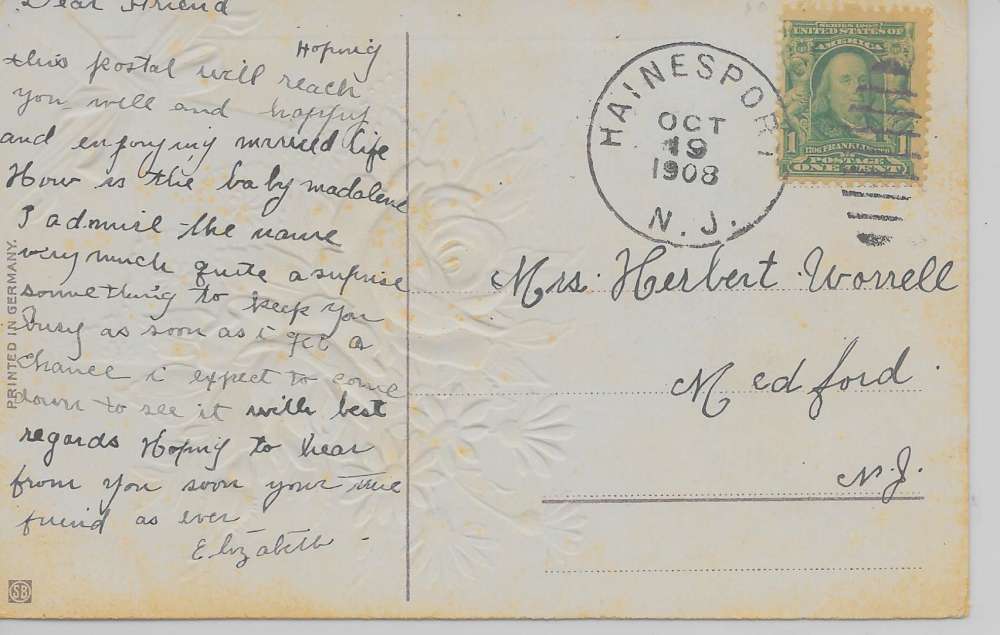 Dear Friend
Hoping
this postal will reach
you well and happy
and enjoying married life
How is the baby madalene
I admire the name
very much quite a suprise
something to keep you
busy as soon as i get a
chance i expect to come
down to see it with best
regards Hoping to hear
from you soon your true
friend as ever
Elizabeth
PRINTED IN GERMANY.
SB
HAINESPORT
OCT
19
1908
N. J.
SERIES 1902
UNITED STATES OF
AMERICA
1 1
1706 FRANKLIN 1790
POSTAGE
ONE CENT
Mrs. Herbert Worrell
Medford.
N.J.